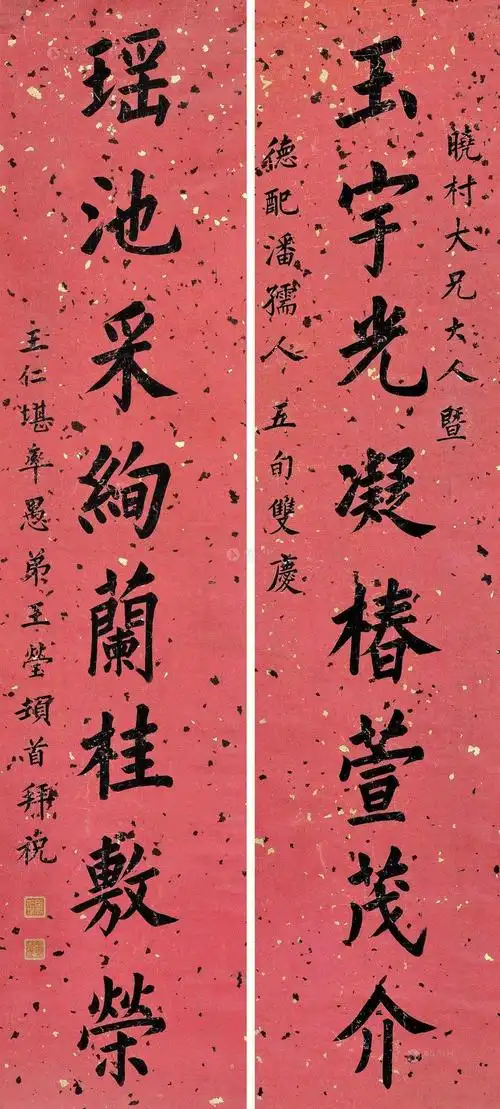 曉村大兄大人暨
玉宇光凝椿萱茂介
德配潘孺人五旬雙慶
瑶池采絢蘭桂敷榮
王仁堪率愚弟王瑩頊首拜祝